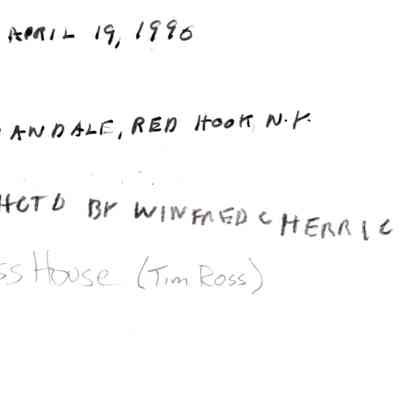 APRIL 19, 1996
ANDALE, RED HOOK N.Y.
HCTD BY WINFRED C HERRIC
ss House (Tim Ross)